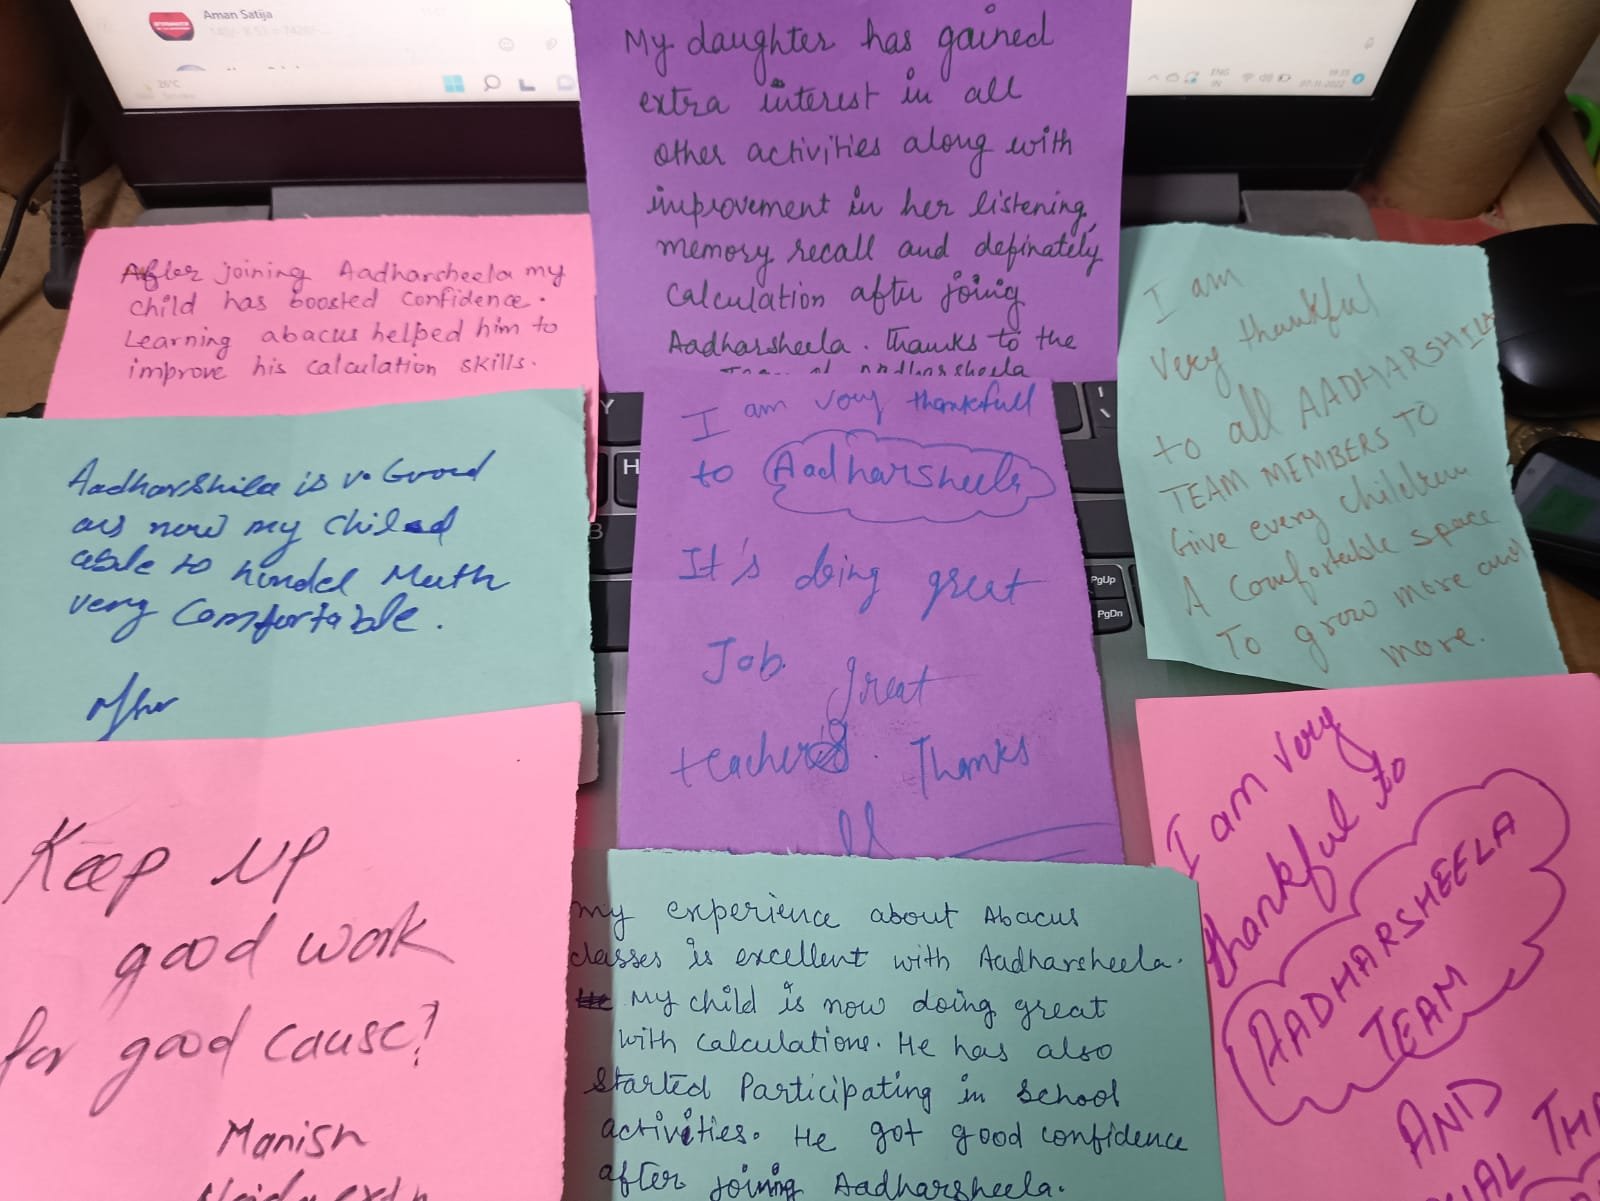 Aman Satija
26°C
ENG
IN
19:25
07-11-2022
My daughter has gained
extra interest in all
other activities along with
improvement in her listening,
memory recall and definately
calculation after joing
Aadharsheela. Thanks to the
Team of Aadharsheela
After joining Aadharsheela my
child has boosted confidence.
Learning abacus helped him to
improve his calculation skills.
I am
very thankful
to all AADHARSHILA
TEAM MEMBERS TO
Give every children
A Comfortable space
To grow more and
more.
Aadharshila is v. Good
as now my child
able to handel Math
very Comfortable.
I am very thankfull
to Aadharsheela
It's doing great
Job. great
teachers. Thanks
Y
H
B
PgUp
PgDn
Keep up
good work
for good cause!
Manish
I am very
thankful to
AADHARSHEELA
TEAM
AND
my experience about Abacus
classes is excellent with Aadharsheela.
My child is now doing great
with calculations. He has also
started Participating in school
activities. He got good confidence
after joining Aadharsheela.